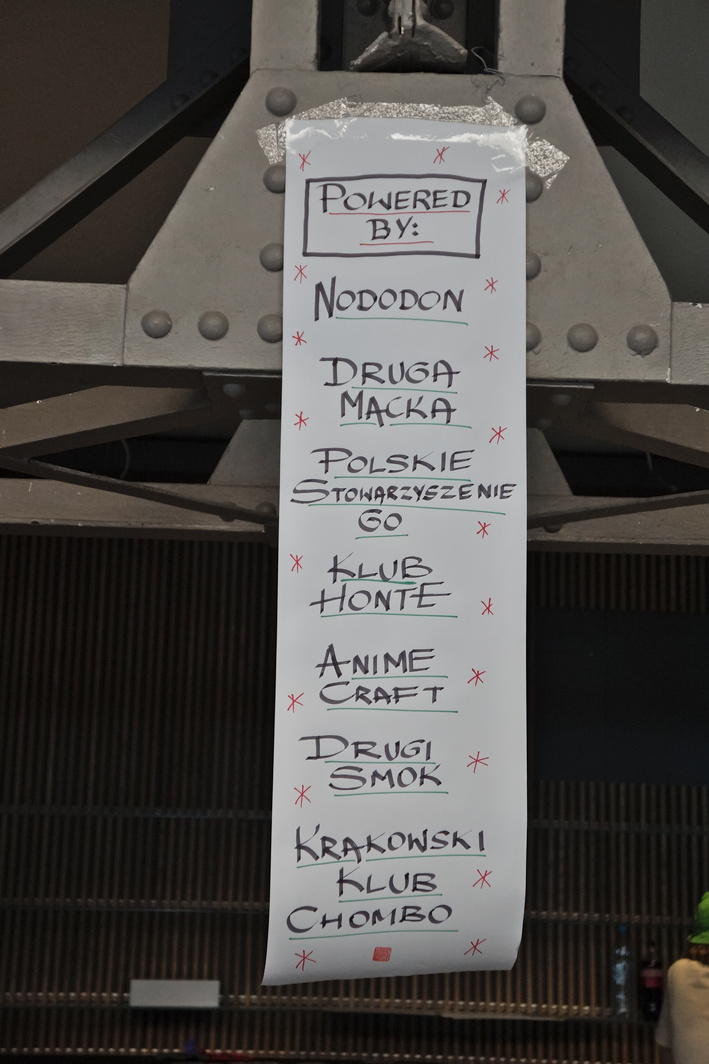 POWERED
BY:
NODODON
DRUGA
MĄCKA
POLSKIE
STOWARZYSZENIE
GO
KLUB
HONTE
ANIME
CRAFT
DRUGI
SMOK
KRAKOWSKI
KLUB
CHOMBO